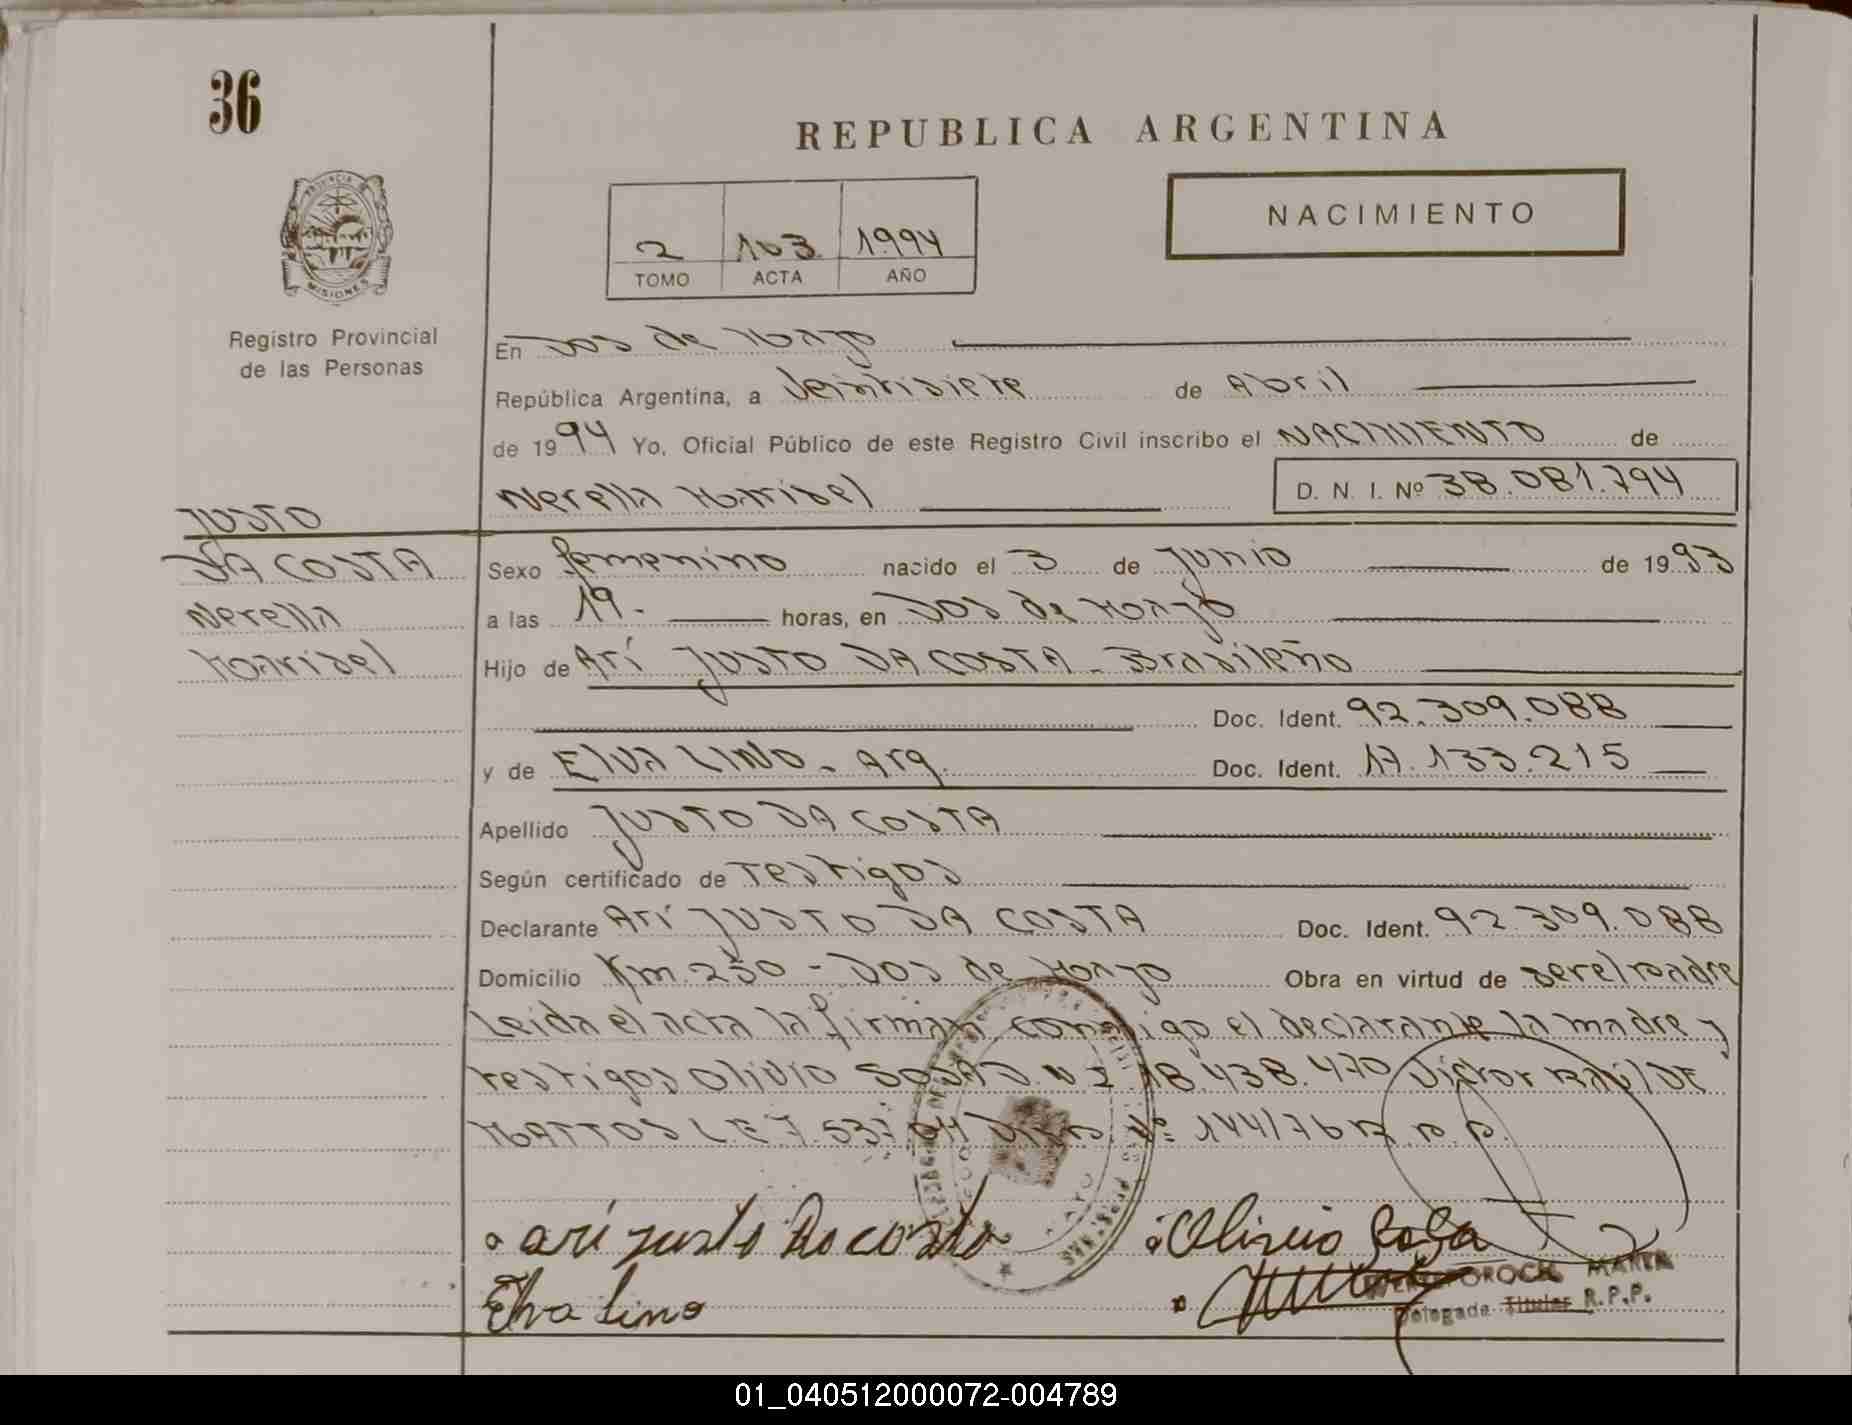 36
REPUBLICA ARGENTINA
NACIMIENTO
2 103 1994
TOMO ACTA AÑO
PROVINCIA DE
MISIONES
Registro Provincial
de las Personas
En Dos de Mayo
República Argentina, a Veintisiete de Abril
de 1994 Yo, Oficial Público de este Registro Civil inscribo el NACIMIENTO de
Nerella Marisel D. N. I. Nº 38.081.794
JUSTO
DA COSTA
Nerella
Marisel
Sexo femenino nacido el 3 de Junio de 1993
a las 19. horas, en Dos de Mayo
Hijo de Arí JUSTO DA COSTA - Brasileño
Doc. Ident. 92.309.088
y de Elva LINO - Arg. Doc. Ident. 17.133.215
Apellido JUSTO DA COSTA
Según certificado de Testigos
Declarante Arí JUSTO DA COSTA Doc. Ident. 92.309.088
Domicilio Km. 250 - Dos de Mayo Obra en virtud de ser el padre
Leida el acta la firman conmigo el declarante la madre y
testigos Olivio SOSA D.N.I. 18.438.470 Victor Raúl DE
MATTOS L E 7.537. Disp. Nº 144/76 R.P.P.
Ari justo Da costa
Olivio Sosa
Elva Lino
MARTA
Delegada Titular R.P.P.
01_040512000072-004789